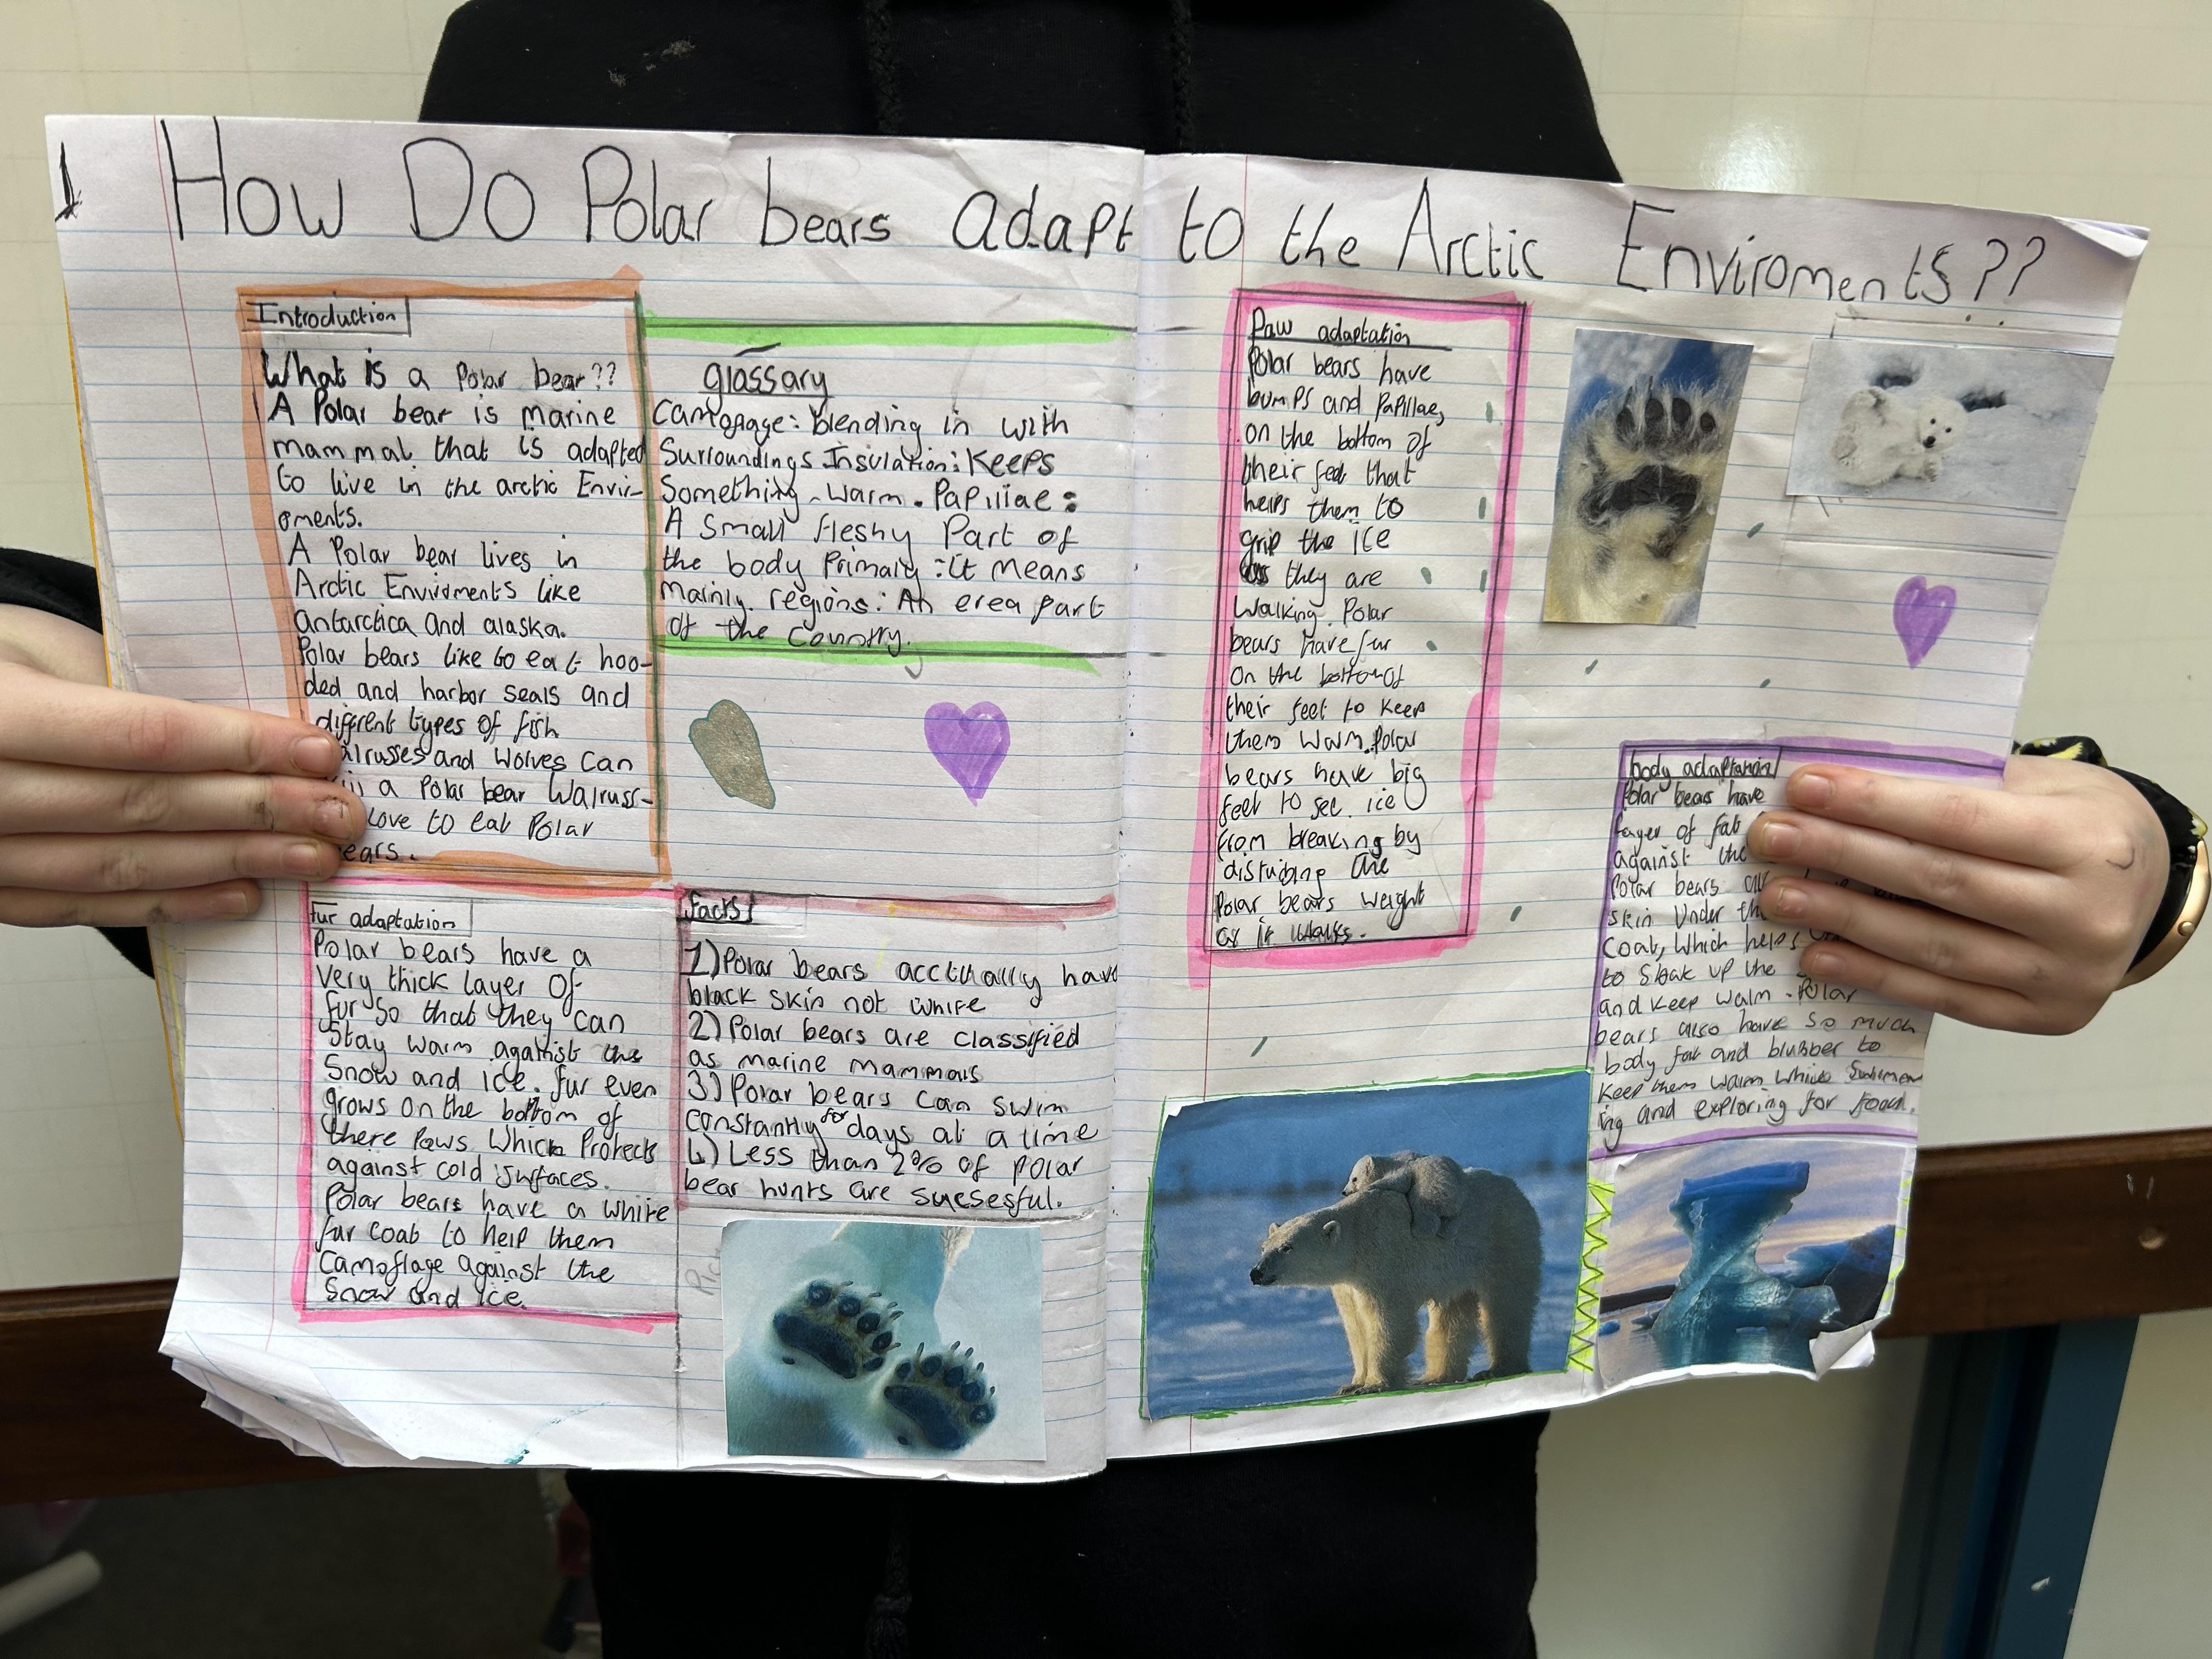 How Do Polar bears adapt to the Arctic Enviroments??
Introduction
What is a Polar bear??
A Polar bear is marine
mammal that is adapted
to live in the arctic Envir-
oments.
A Polar bear lives in
Arctic Enviroments like
antarctica and alaska.
Polar bears like to eat hoo-
ded and harbor seals and
different types of fish
and Wolves can
a Polar bear Walruss-
Love to eat Polar
glossary
Camoflage: blending in with
Surroundings Insulation: Keeps
Something warm. Papillae:
A Small fleshy Part of
the body Primaly: it means
mainly. regions: An erea part
of the country.
fur adaptation
Polar bears have a
very thick layer of
fur so that they can
Stay warm against the
Snow and ice. fur even
grows on the bottom of
there Paws Which Protects
against cold surfaces.
Polar bears have a white
fur coat to help them
Camoflage against the
Snow and ice.
facts
1) Polar bears acctually have
black skin not white
2) Polar bears are classified
as marine mammals
3) Polar bears can swim
constantly for days at a time
4) Less than 2% of polar
bear hunts are sucsesful.
Paw adaptation
Polar bears have
bumps and Papillae,
on the bottom of
their feet that
helps them to
grip the ice
they are
Walking. Polar
bears have fur
on the bottom of
their feet to keep
them warm. Polar
bears have big
feet to
ice
from breaking by
the
Polar bears weight
as it walks.
body adaptation
Polar bears have
layer of fat
against the
Polar bears
skin under
Coat, Which helps
to Soak up the
and keep warm. Polar
bears also have so much
body fat and blubber to
Keep them warm while Swimm
ing and exploring for food.